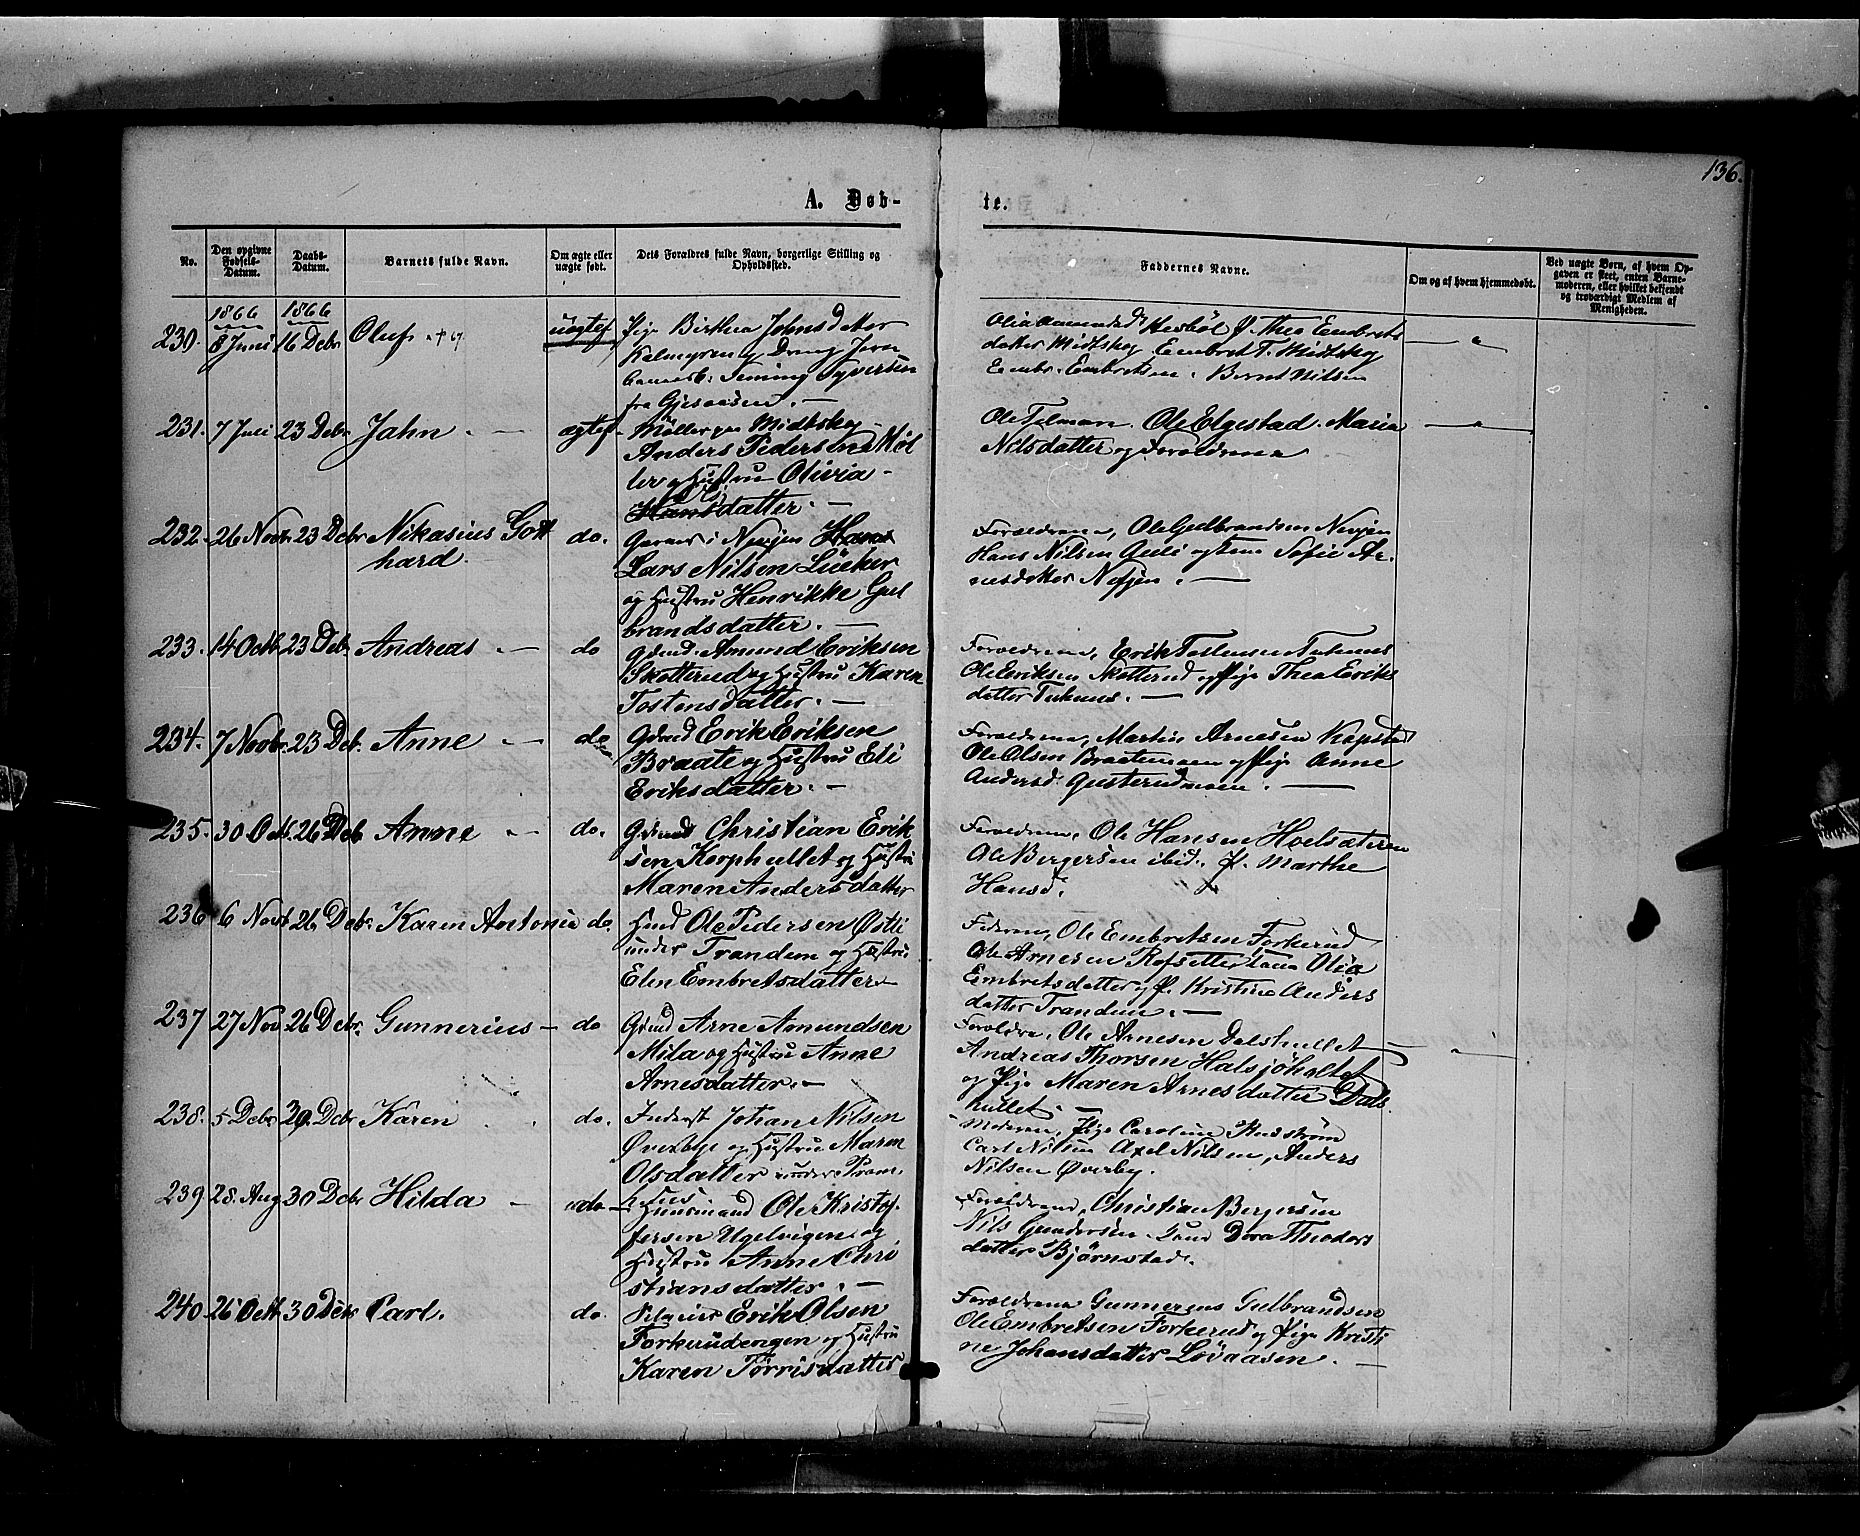 136.
A. Døb-
te.
No.
Den opgivne Fødsels-Datum.
Daabs-Datum.
Barnets fulde Navn.
Om ægte eller uægte født.
Dets Forældres fulde Navn, borgerlige Stilling og Opholdssted.
Faddernes Navne.
Om og af hvem hjemmedøbt.
Ved uægte Børn, af hvem Opgaven er skeet, enten Barnemoderen, eller hvilket bekjendt og troværdigt Medlem af Menigheden.
1866 1866
230. 8 Juni 16 Debr Oluf uægtef Pige Birthea Johnsdatter
Kalmyren og Dreng
Teming Syversen
fra Gjesaasen. —
Heshøl P. Thea Embrets
datter Midtskog Embret T. Midtskog
Embr. Embretsen. Bernt Nilsen
231. 7 Juli 23 Debr Jahn. — ægtef Møller paa Midtskog
Anders Pedersen Møl
ler og Hustru Olivia
datter. —
Ole Telman. Ole Elgestad. Maria
Nilsdatter og Forældrene
232. 26 Novbr 23 Debr Nikasius Gott
hard. do. i Nersjen
Lars Nilsen Lücker
og Hustru Henrikke Gul
brandsdatter. —
Forældrene, Ole Gulbrandsen
Hans Nilsen og Sofie Ar-
nesdatter —
233. 14 Octb 23 Debr Andreas — do Grdmd. Amund Eriksen
Skotterud og Hustru Karen
Tostensdatter. —
Forældrene, Erik Tostensen
Ole Eriksen Skotterud og Pige Thea Eriks
datter —
234. 7 Novbr. 23 Deb. Anne — do Grdmd Erik Eriksen
Braate og Hustru Eli
Eriksdatter. —
Forældrene, Martin Arnesen
Ole Olsen Braatemoen og Pige Anne
Andersd. —
235. 30 Oct. 26 Deb Anne — do. Christian Erik
sen Korphullet og Hustru
Maren Andersdatter
Forældrene, Ole Hansen Hoelsæteren
Ole Bergersen ibid. P. Marthe
Hansd.
236 6 Novb 26 Debr. Karen Antonia do. Ole Pedersen Østli
under Trandem og Hustru
Elen Embretsdatter
Faderen, Ole Embretsen Forkerud
Ole Arnesen Olia
Embretsdatter og P. Kristine Anders
datter Trandem. —
237 27 Nov 26 Debr. Gunnerius — do Arne Amundsen
Mila og Hustru Anne
Arnesdatter. —
Forældre, Ole Arnesen Dalshullet
Andreas Thorsen Halsjöholtet
og Pige Maren Arnesdatter Dals
hullet. —
238. 5 Debr 29 Debr Karen do. Inderst Johan Nilsen
Øverbye og Hustru Maren
Olsdatter under
Moderen, Pige Caroline
Carl Nilsen Axel Nilsen, Anders
Nilsen Øverby.
239 28. Aug 30 Debr Hilda — do Huusmand Ole Kristof
fersen Ugelvigen og
Hustru Anne Chri
stiansdatter. —
Forældrene, Christian Bergersen
Nils Gundersen. Dora Theodors
datter Bjørnstad.
240. 26 Octb 30 Debr Carl. do. Erik Olsen
Forkerudengen og Hustru
Karen Tørrisdatter
Forældrene Gunnerius Gulbrandsen
Ole Embretsen Forkerud og Pige Kristi
ne Johansdatter Lövaasen. —